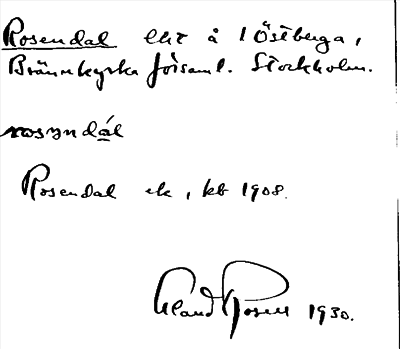 Rosendal lht å 1 Östberga,
Brännkyrka församl. Stockholm.
rosŋndál
Rosendal ek, kb 1908.
Rosell 1930.